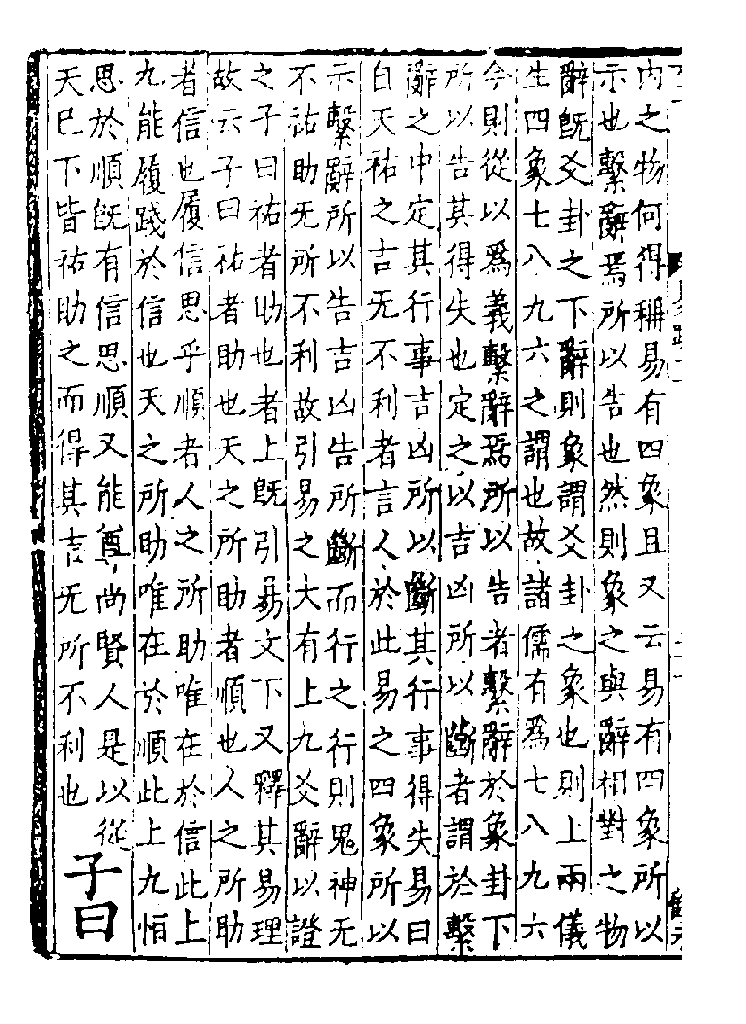 内之物何得稱易有四象且又云易有四象所以
示也繫辭焉所以告也然則象之與辭相對之物
辭旣爻卦之下辭則象謂爻卦之象也則上兩儀
生四象七八九六之謂也故諸儒有爲七八九六
今則從以爲義繫辭焉所以告者繫辭於象卦下
所以告其得失也定之以吉凶所以斷者謂於繫
辭之中定其行事吉凶所以斷其行事得失易曰
自天祐之吉无不利者言人於此易之四象所以
示繫辭所以告吉凶告所斷而行之行則鬼神无
不祐助无所不利故引易之大有上九爻辭以證
之子曰祐者助也者上旣引易文下又釋其易理
故云子曰祐者助也天之所助者順也人之所助
者信也履信思乎順者人之所助唯在於信此上
九能履踐於信也天之所助唯在於順此上九恒
思於順旣有信思順又能尊尚賢人是以從
天已下皆祐助之而得其吉无所不利也
子曰